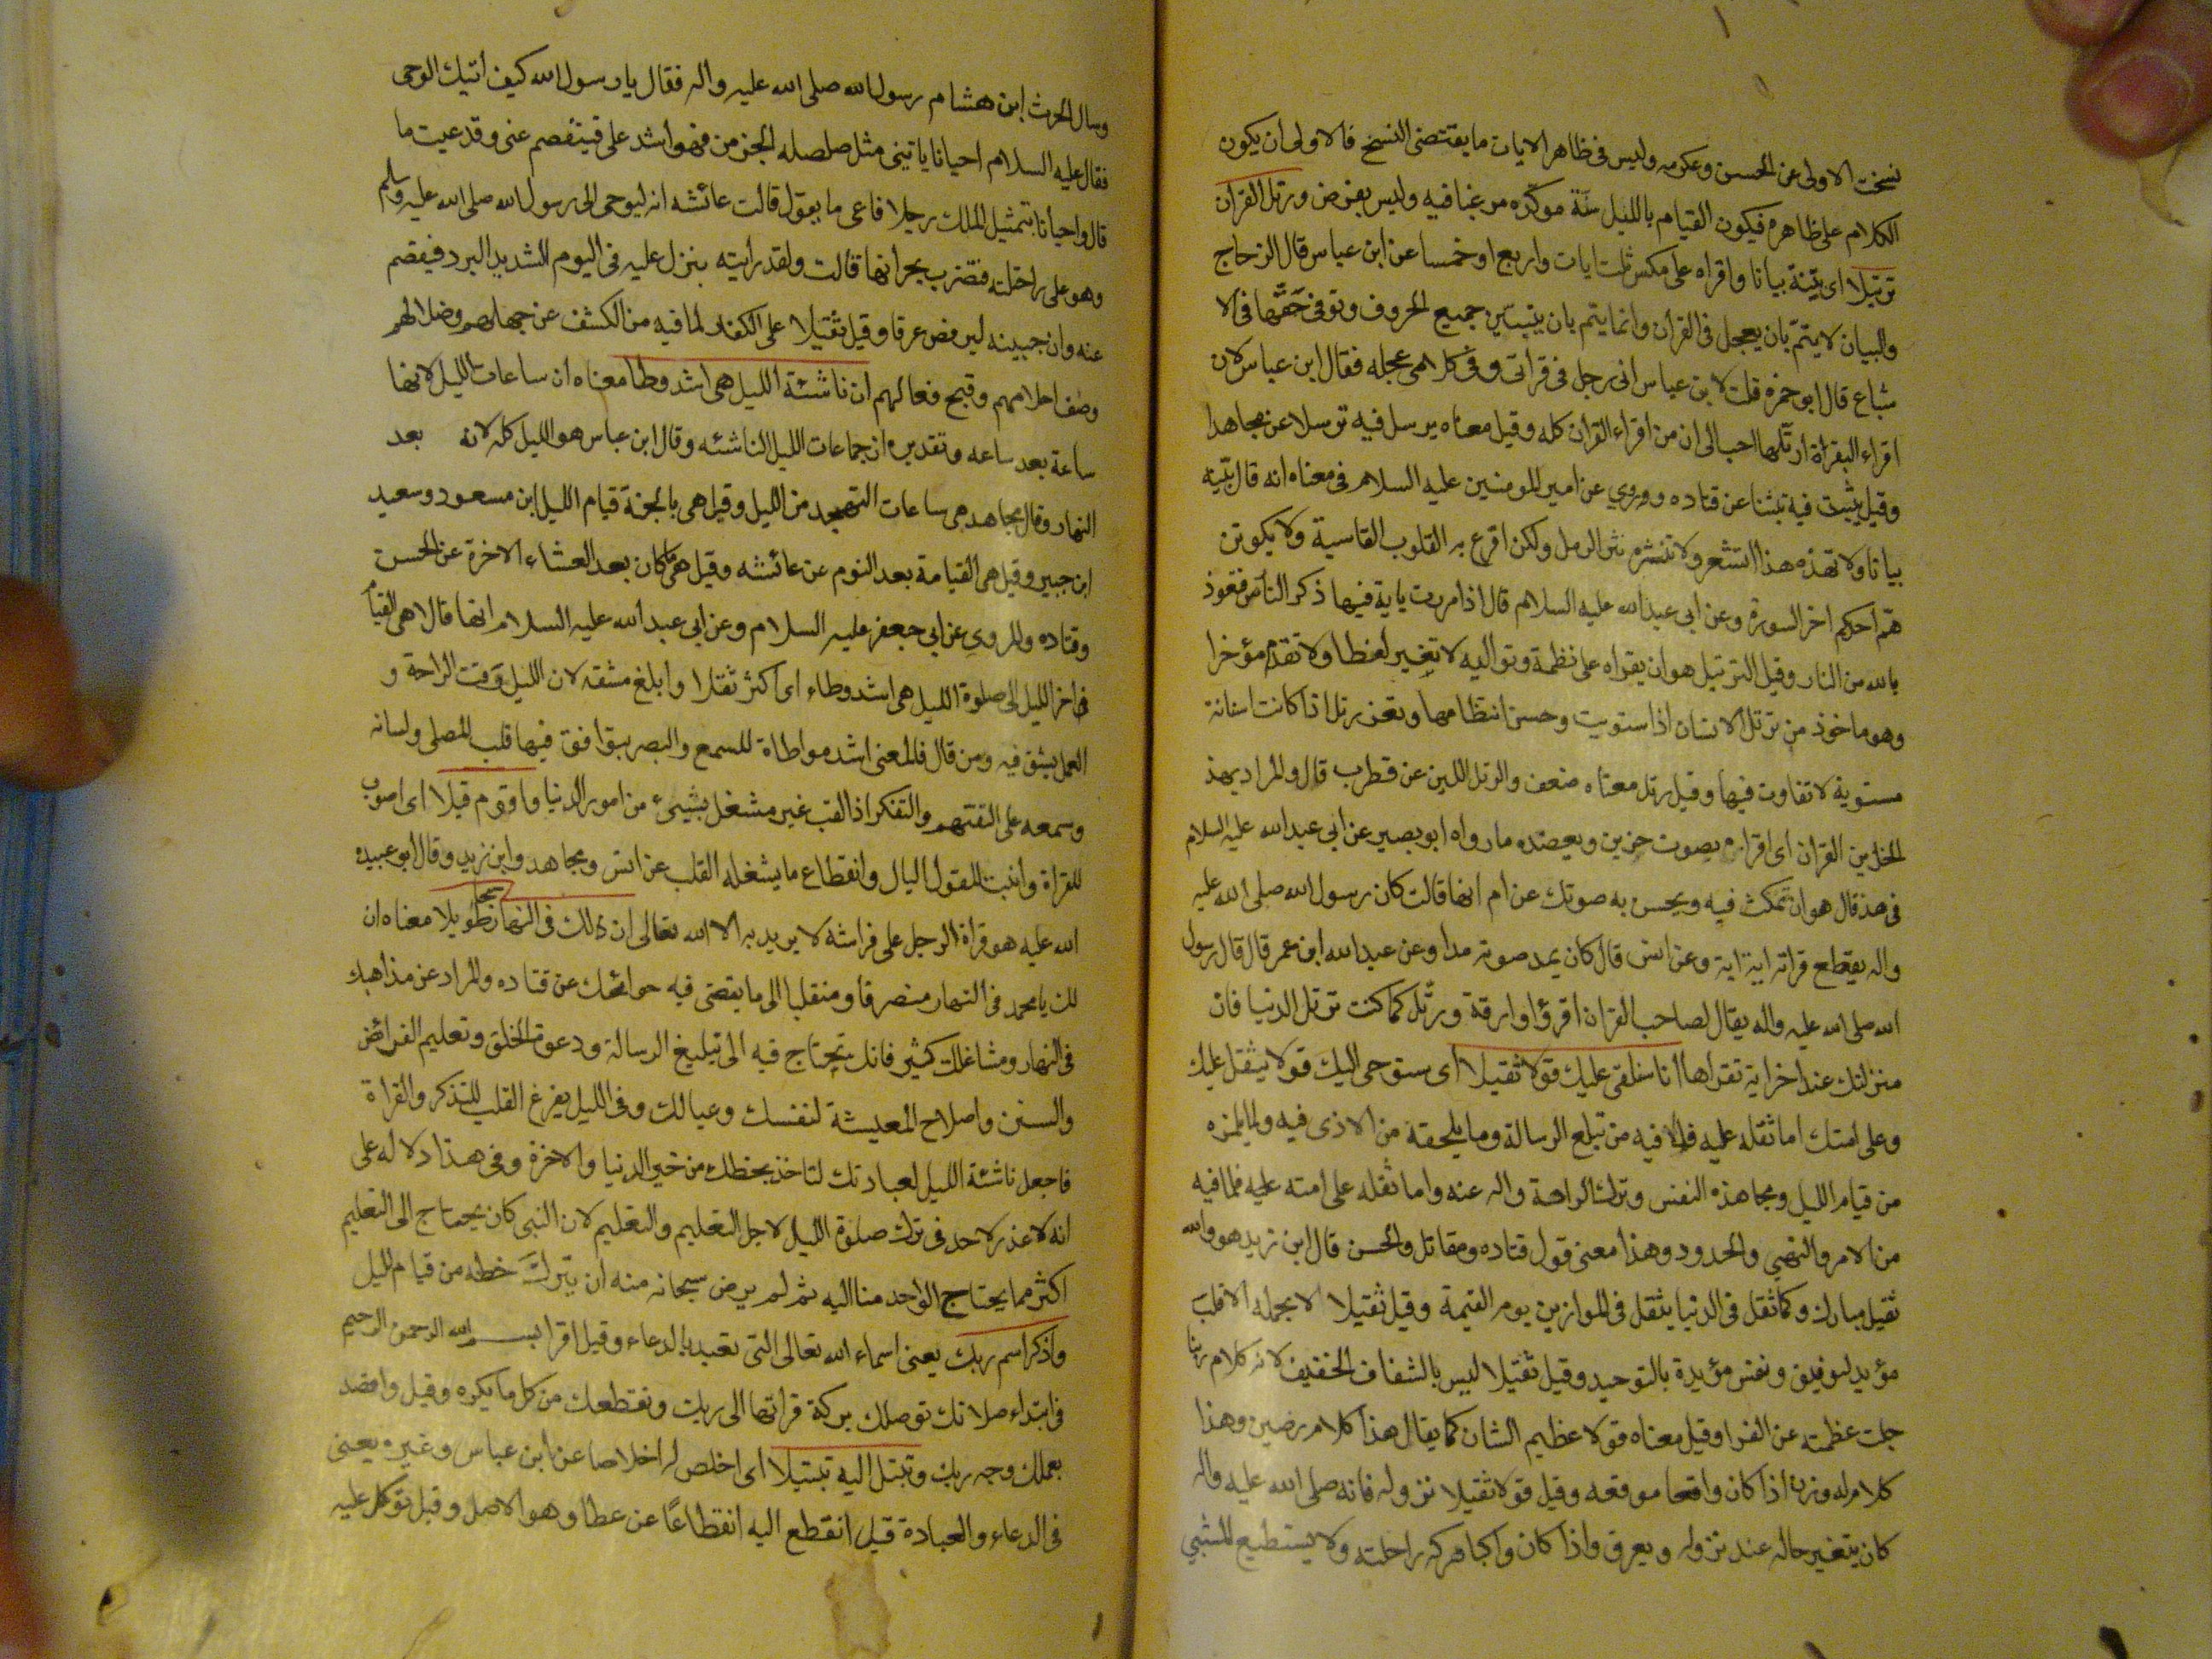 نسخت الاولى عن الحسن وعكرمه وليس فى ظاهر الايات ما يقتضى النسخ فالاولى ان يكون
الكلام على ظاهره فيكون القيام بالليل سنّة موكّده مرغبا فيه وليس بفرض ورتل القران
ترتيلا اى بيّنة بيانا واقراه على مكس ثلث ايات واربع او خمسا عن ابن عباس قال الزجاج
والبيان لا يتمّ بان يعجل فى القران وانما يتم بان يتبيّن جميع الحروف وتوفى حقّها فى الا
شباع قال ابو حمزه قلت لابن عباس انى رجل فى قراتى وفى كلامى عجله فقال ابن عباس لان
اقراء البقراة ارتّلها احب الى ان من اقراء القران كله وقيل معناه يرسل فيه ترسلا عن مجاهدا
وقيل يثبت فيه تبثنا عن قتاده وروي عن امير المومنين عليه السلام فى معناه انه قال بيّنه
بيانا ولا تهذه هذا الشعر ولا تنثره نثر الرمل ولكن اقرع به القلوب القاسية ولا يكونن
همّ احدكم اخر السورة وعن ابى عبد الله عليه السلام قال اذا مررت باية فيها ذكر النار فتعوذ
بالله من النار وقيل الترتيل هو ان يقراه على نظمة وتواليه لا تغيير لفظا ولا تقدم مؤخرا
وهو ماخوذ من ترتل الانسان اذا ستويت وحسن انتظامها وثغر رتل اذا كانت اسنانة
مستوية لا تفاوت فيها وقيل رتل معناه ضعف والرتل اللين عن قطرب قال والمراد بهذ
الخل من القران اى اقراه بصوت حزين ويعضده ما رواه ابو بصير عن ابى عبد الله عليه السلام
فى هذ قال هو ان تمكث فيه ويحسن به صوتك عن ام انها قالت كان رسول الله صلى الله عليه
واله يقطع قراته اية اية وعن انس قال كان يمد صوته مدا وعن عبد الله ابن عمر قال قال رسول
الله صلى الله عليه واله يقال لصاحب القران اقرؤا وارقة ورتّل كما كنت ترتل الدنيا فان
منزلتك عند اخر اية تقراها انا سنلقى عليك قولا ثقيلا اى سنوحى اليك قولا يثقل عليك
وعلى امتك اما ثقله عليه فلما فيه من تبلع الرسالة وما يلحقة من الاذى فيه ولما يلزه
من قيام الليل ومجاهذه النفس وترك الراحة واله عنه واما ثقله على امته عليه فلما فيه
من الامر والنهي والحدود وهذا معنى قول قتاده ومقاتل والحسن قال ابن زيد هو والله
ثقيل مبارك وكما ثقل فى الدنيا يثقل فى الموازين يوم القيمة وقيل ثقيلا لا يحمله الا قلب
مؤيد لتوفيق ونفس مؤيدة بالتوحيد وقيل ثقيلا ليس بالشفاف الخفيف لانه كلام ربنا
جلت عظمته عن الفرا وقيل معناه قولا عظيم الشان كما يقال هذا كلام رضين وهذا
كلام له وزن اذا كان واقعا موقعه وقيل قولا ثقيلا نزوله فانه صلى الله عليه واله
كان يتغير حاله عند نزوله ويعرق واذا كان راكبا مركه راحلته ولا يستطيع المشي
وسال الحرث ابن هشام رسول الله صلى الله عليه واله فقال يا رسول الله كيف اتيك الوحى
فقال عليه السلام احيانا ياتينى مثل صلصله الجز من فهو اشد على فينفصم عنى وقد عيت ما
قال واحيانا يتمثيل الملك رجلا فاعى ما يقول قالت عائشه انه ليوحى الى رسول الله صلى الله عليه وسلم
وهو على راحلته فتضرب بجرانها قالت ولقد رايته ينزل عليه فى اليوم الشديد البرد فيفصم
عنه وان جبينه ليرفض عرقا وقيل ثقيلا على الكفار لما فيه من الكشف عن جهالهم وضلالهم
وصف احلامهم وقبح فعالهم ان ناشئة الليل هى اشد وطا معناه ان ساعات الليل لانها
ساعة بعد ساعه وتقديره ان جماعات الليل الناشئه وقال ابن عباس هو الليل كله لانه بعد
النهار وقال مجاهد هى ساعات التهجد من الليل وقيل هى بالجنة قيام الليل ابن مسعود وسعيد
ابن جبير وقيل هى القيامة بعد النوم عن عائشه وقيل هى ما كان بعد العشاء الاخرة عن الحسن
وقتاده والمروي عن ابى جعفر عليه السلام وعن ابى عبد الله عليه السلام انها قالا هى القيام
فى اخر الليل الى صلوة الليل هى اشد وطاء اى اكثر ثقلا وابلغ مشقه لان الليل وقت الراحة و
العمل يشق فيه ومن قال فالمعنى اشد مواطاة للسمع والبصر يتوافق فيها قلب المصلى ولسانه
وسمعه على التفهم والتفكر اذ القب غير مشغل بشيىء من امور الدنيا واقوم قيلا اى اصوب
للقراة واثبت للقول اليال وانقطاع ما يشغله القلب عن انس ومجاهد وابن زيد وقال ابو عبيده
الله عليه هو قراة الرجل على فراشه لا يريد به الا الله تعالى ان لك فى النهار سبحا طويلا معناه ان
لك يا محمد فى النهار منصرفا ومنقلبا الى ما يقضى فيه حوائجك عن قتاده والمراد عن مذاهبك
فى النهار ومشاغلك كثير فانك تحتاج فيه الى تبليغ الرسالة ودعوة الخلق وتعليم الفرائض
والسنن واصلاح المعيشة لنفسك وعيالك وفى الليل يفرغ القلب للتذكر والقراة
فاجعل ناشئة الليل لعبادتك لتاخذ بحظك من خير الدنيا والاخزة وفى هذا دلاله على
انه لا عذر لاحد فى ترك صلوة الليل لاجل التعليم والتعليم لان النبى كان يحتاج الى التعليم
اكثر مما يحتاج الواحد منا اليه ثم لم يرض سبحانه منه ان يترك خطه من قيام الليل
واذكر اسم ربك يعنى اسماء الله تعالى التى تعبد بالدعاء وقيل اقرا بسم الله الرحمن الرحيم
فى ابتداء صلاتك توصلك بركة قراتها الى ربك وتقطعك من كل ما يكره وقيل واقصد
بعملك وجه ربك وتبتل اليه تبتيلا اى اخلص له اخلاصا عن ابن عباس وغيره يعنى
فى الدعاء والعبادة قيل انقطع اليه انقطاعًا عن عطا وهو الاصل وقيل توكل عليه